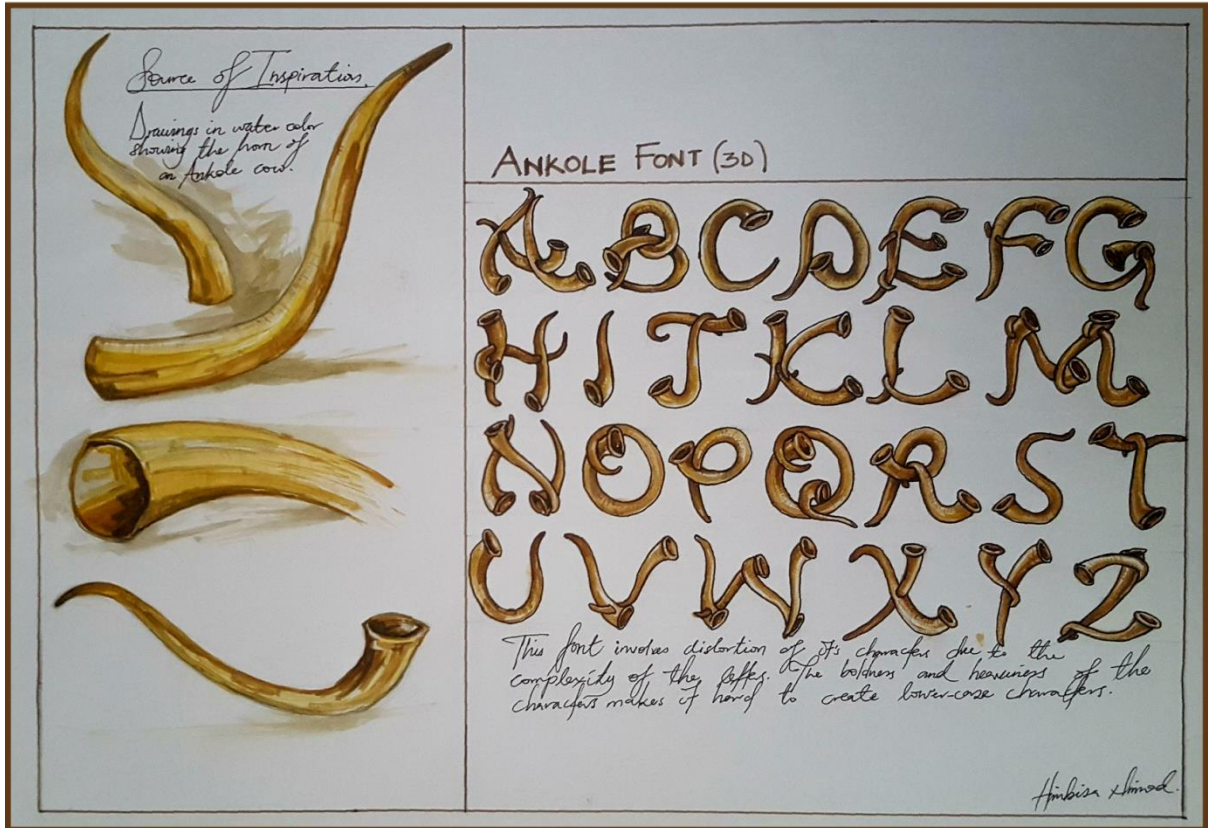 Source of Inspiration.
Drawings in water color
showing the horn of
an Ankole cow.
ANKOLE FONT (3D)
A B C D E F G
H I J K L M
N O P Q R S T
U V W X Y Z
This font involves distortion of its characters due to the
complexity of the letters. The boldness and heaviness of the
characters makes it hard to create lower-case characters.